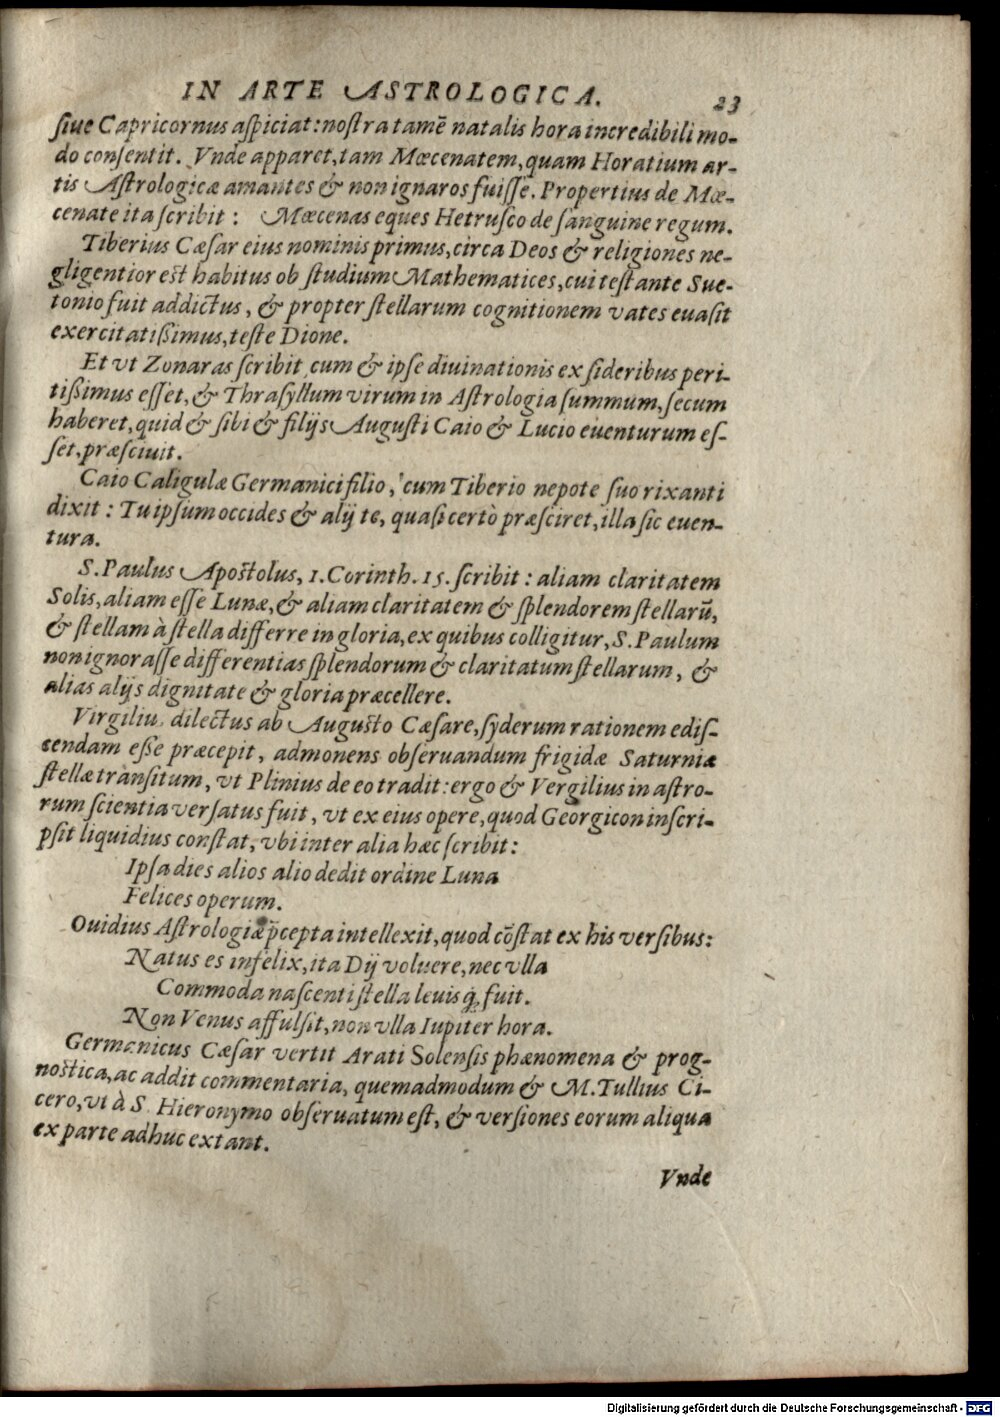 IN ARTE ASTROLOGICA. 23
siue Capricornus aspiciat: nostra tamē natalis hora incredibili mo-
do consentit. Vnde apparet, tam Mœcenatem, quam Horatium ar-
tis Astrologicæ amantes & non ignaros fuisse. Propertius de Mœ-
cenate ita scribit: Mœcenas eques Hetrusco de sanguine regum.
Tiberius Cæsar eius nominis primus, circa Deos & religiones ne-
gligentior est habitus ob studium Mathematices, cui testante Sue-
tonio fuit addictus, & propter stellarum cognitionem vates euasit
exercitatißimus, teste Dione.
Et vt Zonaras scribit, cum & ipse diuinationis ex sideribus peri-
tißimus esset, & Thrasyllum virum in Astrologia summum, secum
haberet, quid & sibi & filijs Augusti Caio & Lucio euenturum es-
set, præsciuit.
Caio Caligulæ Germanici filio, cum Tiberio nepote suo rixanti
dixit: Tu ipsum occides & alij te, quasi certò præsciret, illa sic euen-
tura.
S. Paulus Apostolus, 1. Corinth. 15. scribit: aliam claritatem
Solis, aliam esse Lunæ, & aliam claritatem & splendorem stellarū,
& stellam à stella differre in gloria, ex quibus colligitur, S. Paulum
non ignorasse differentias splendorum & claritatum stellarum, &
alias alijs dignitate & gloria præcellere.
Virgiliu, dilectus ab Augusto Cæsare, syderum rationem edis-
cendam eße præcepit, admonens obseruandum frigidæ Saturniæ
stellæ transitum, vt Plinius de eo tradit: ergo & Vergilius in astro-
rum scientia versatus fuit, vt ex eius opere, quod Georgicon inscri-
psit liquidius constat, vbi inter alia hæc scribit:
Ipsa dies alios alio dedit ordine Luna
Felices operum.
Ouidius Astrologiæ p̄cepta intellexit, quod cōstat ex his versibus:
Natus es infelix, ita Dij voluere, nec vlla
Commoda nascenti stella leuis q́; fuit.
Non Venus affulsit, non vlla Iupiter hora.
Germanicus Cæsar vertit Arati Solensis phænomena & prog-
nostica, ac addit commentaria, quemadmodum & M. Tullius Ci-
cero, vt à S. Hieronymo obseruatum est, & versiones eorum aliqua
ex parte adhuc extant.
Vnde
Digitalisierung gefördert durch die Deutsche Forschungsgemeinschaft - DFG